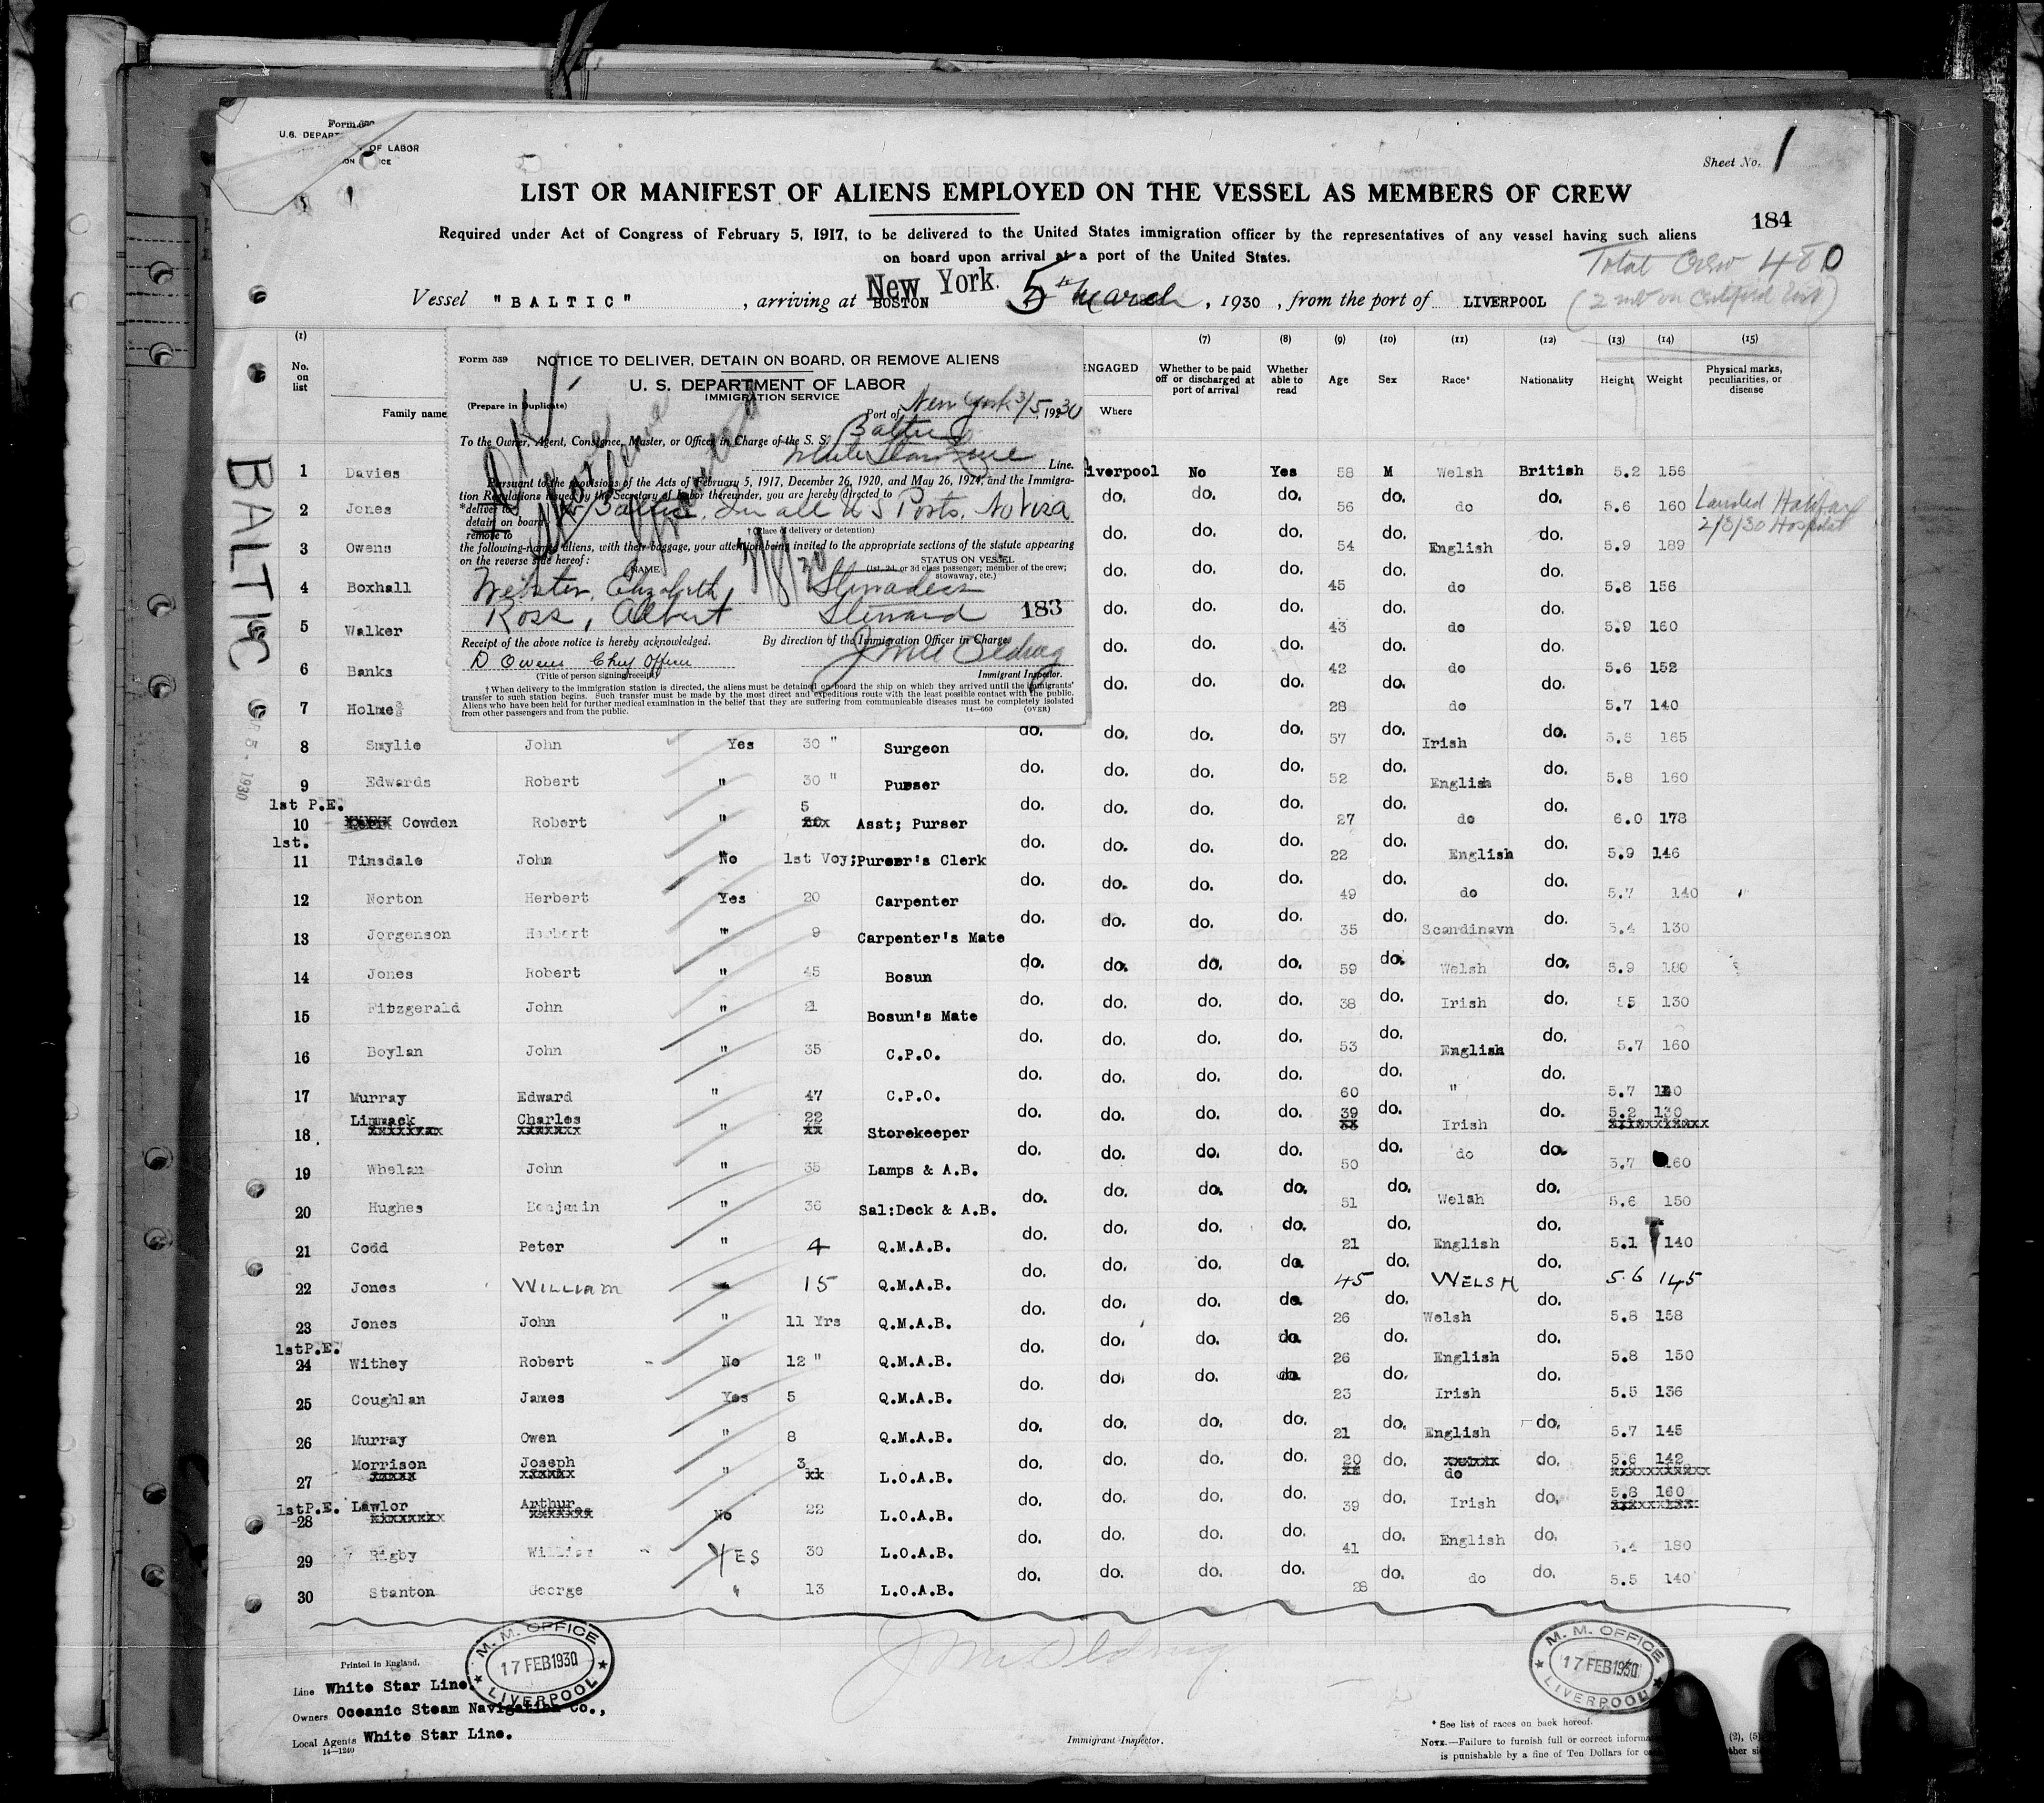 Form 680
U.S. DEPART OF LABOR
Sheet No. 1
LIST OR MANIFEST OF ALIENS EMPLOYED ON THE VESSEL AS MEMBERS OF CREW
184
Required under Act of Congress of February 5, 1917, to be delivered to the United States immigration officer by the representatives of any vessel having such aliens
on board upon arrival at a port of the United States.
Total Crew 480
Vessel "BALTIC", arriving at BOSTON New York. 5th March, 1930, from the port of LIVERPOOL
(1) (7) (8) (9) (10) (11) (12) (13) (14) (15)
No. on list Family name ENGAGED Where Whether to be paid off or discharged at port of arrival Whether able to read Age Sex Race* Nationality Height Weight Physical marks, peculiarities, or disease
Form 539
NOTICE TO DELIVER, DETAIN ON BOARD, OR REMOVE ALIENS
U. S. DEPARTMENT OF LABOR
IMMIGRATION SERVICE
(Prepare in Duplicate)
Port of New York 3/5, 1930
To the Owner, Agent, Consignee, Master, or Officer in Charge of the S. S. Baltic
White Star Line Line.
Pursuant to the provisions of the Acts of February 5, 1917, December 26, 1920, and May 26, 1924, and the Immigra-
tion Regulations issued by the Secretary of Labor thereunder, you are hereby directed to
*deliver to
detain on board
remove to
Baltic. In all U S Ports. No Visa
† (Place of delivery or detention)
the following-named aliens, with their baggage, your attention being invited to the appropriate sections of the statute appearing
on the reverse side hereof:
NAME
STATUS ON VESSEL
(1st, 2d, or 3d class passenger; member of the crew;
stowaway, etc.)
Webster, Elizabeth Stewardess
Ross, Albert Steward 183
Receipt of the above notice is hereby acknowledged. By direction of the Immigration Officer in Charge:
D Owens Chief Officer
(Title of person signing receipt)
Immigrant Inspector.
† When delivery to the immigration station is directed, the aliens must be detained on board the ship on which they arrived until the immigrants'
transfer to such station begins. Such transfer must be made by the most direct and expeditious route with the least possible contact with the public.
Aliens who have been held for further medical examination in the belief that they are suffering from communicable diseases must be completely isolated
from other passengers and from the public.
14—660 (OVER)
BALTIC
1 Davies iverpool No Yes 58 M Welsh British 5.2 156
2 Jones do. do. do. 56 do. do do. 5.6 160 Landed Halifax 2/3/30 Hospital
3 Owens do. do. do. 54 do. English do. 5.9 189
4 Boxhall do. do. do. 45 do. do do. 5.8 156
5 Walker do. do. do. 43 do. do do. 5.9 160
6 Banks do. do. do. 42 do. do do. 5.6 152
7 Holmes do. do. do. 28 do. do do. 5.7 140
8 Smylie John Yes 30 " Surgeon do. do. do. do. 57 do. Irish do. 5.6 165
9 Edwards Robert " 30 " Purser do. do. do. do. 52 do. English do. 5.8 160
1st P.E.
10 Cowden Robert " 5 Asst; Purser do. do. do. do. 27 do. do do. 6.0 178
1st.
11 Tinsdale John No 1st Voy; Purser's Clerk do. do. do. do. 22 do. English do. 5.9 146
12 Norton Herbert Yes 20 Carpenter do. do. do. do. 49 do. do do. 5.7 140
13 Jorgenson Herbert " 9 Carpenter's Mate do. do. do. do. 35 do. Scandinavn do. 5.4 130
14 Jones Robert " 45 Bosun do. do. do. do. 59 do. Welsh do. 5.9 180
15 Fitzgerald John " 21 Bosun's Mate do. do. do. do. 38 do. Irish do. 55 130
16 Boylan John " 35 C.P.O. do. do. do. do. 53 do. English do. 5.7 160
17 Murray Edward " 47 C.P.O. do. do. do. do. 60 do. " do. 5.7
18 Limmack Charles " 22 Storekeeper do. do. do. do. 39 do. Irish do. 5.2 130
19 Whelan John " 35 Lamps & A.B. do. do. do. do. 50 do. do do. 5.7 160
20 Hughes Benjamin " 36 Sal:Deck & A.B. do. do. do. do. 51 do. Welsh do. 5.6 150
21 Codd Peter " 4 Q.M.A.B. do. do. do. do. 21 do. English do. 5.1 140
22 Jones WILLIAM 15 Q.M.A.B. do. do. do. do. 45 do. WELSH do. 5.6 145
23 Jones John " 11 Yrs Q.M.A.B. do. do. do. do. 26 do. Welsh do. 5.8 158
1stP.E.
24 Withey Robert No 12 " Q.M.A.B. do. do. do. do. 26 do. English do. 5.8 150
25 Coughlan James Yes 5 Q.M.A.B. do. do. do. do. 23 do. Irish do. 5.5 136
26 Murray Owen " 8 Q.M.A.B. do. do. do. do. 21 do. English do. 5.7 145
27 Morrison Joseph " 3 L.O.A.B. do. do. do. do. 20 do. do do. 5.6 142
1stP.E.
28 Lawlor Arthur No 22 L.O.A.B. do. do. do. do. 39 do. Irish do. 5.8 160
29 Rigby William YES 30 L.O.A.B. do. do. do. do. 41 do. English do. 5.4 180
30 Stanton George " 13 L.O.A.B. do. do. do. do. 28 do. do do. 5.5 140
M. M. OFFICE 17 FEB 1930 LIVERPOOL
M. M. OFFICE 17 FEB 1930 LIVERPOOL
Printed in England.
Line White Star Line.
Owners Oceanic Steam Navigation Co.,
Local Agents White Star Line.
14—1240
Immigrant Inspector.
* See list of races on back hereof.
NOTE.—Failure to furnish full or correct informa (2), (5)
is punishable by a fine of Ten Dollars for